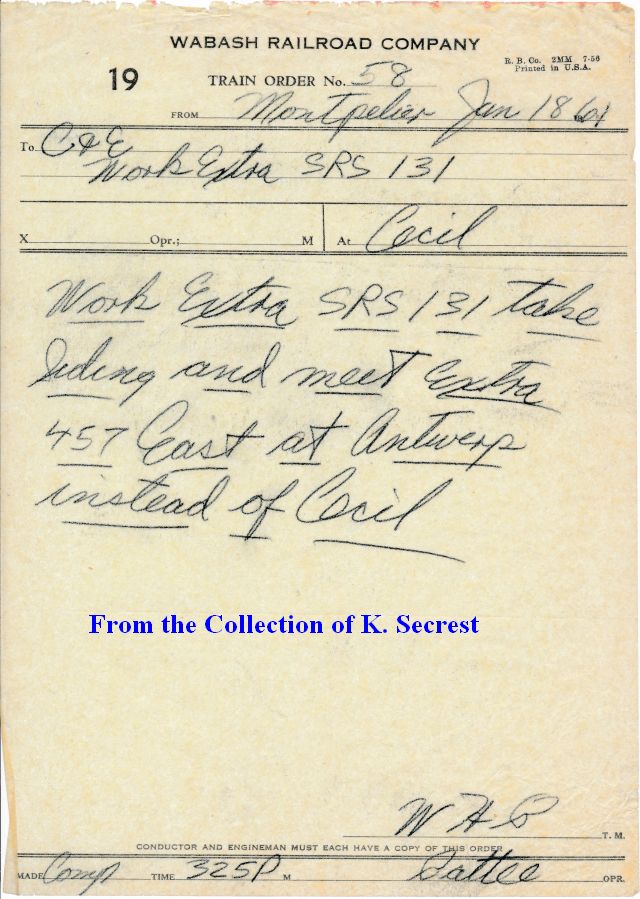 WABASH RAILROAD COMPANY
R. B. Co. 2MM 7-56
Printed in U.S.A.
19 TRAIN ORDER No. 58
FROM Montpelier Jan 18 1961
To C&E
Work Extra SRS 131
X Opr.; M At Cecil
Work Extra SRS 131 take
siding and meet Extra
457 East at Antwerp
instead of Cecil
From the Collection of K. Secrest
W H P T. M.
CONDUCTOR AND ENGINEMAN MUST EACH HAVE A COPY OF THIS ORDER
MADE Comp TIME 325P M OPR.